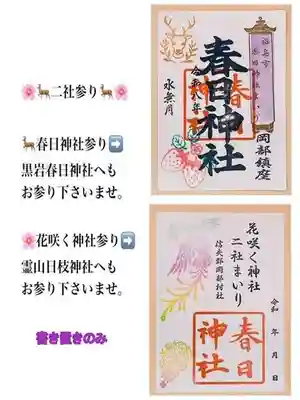 🦌二社参り🌸
🦌春日神社参り➡️
黒岩春日神社へも
お参り下さいませ。
🌸花咲く神社参り➡️
霊山日枝神社へも
お参り下さいませ。
書き置きのみ
福島市
春日神社まいり
岡部鎮座
春日神社
春日
令和八年
水無月
花咲く神社
二社まいり
信夫郡岡部村社
令和 年 月 日
春日
神社